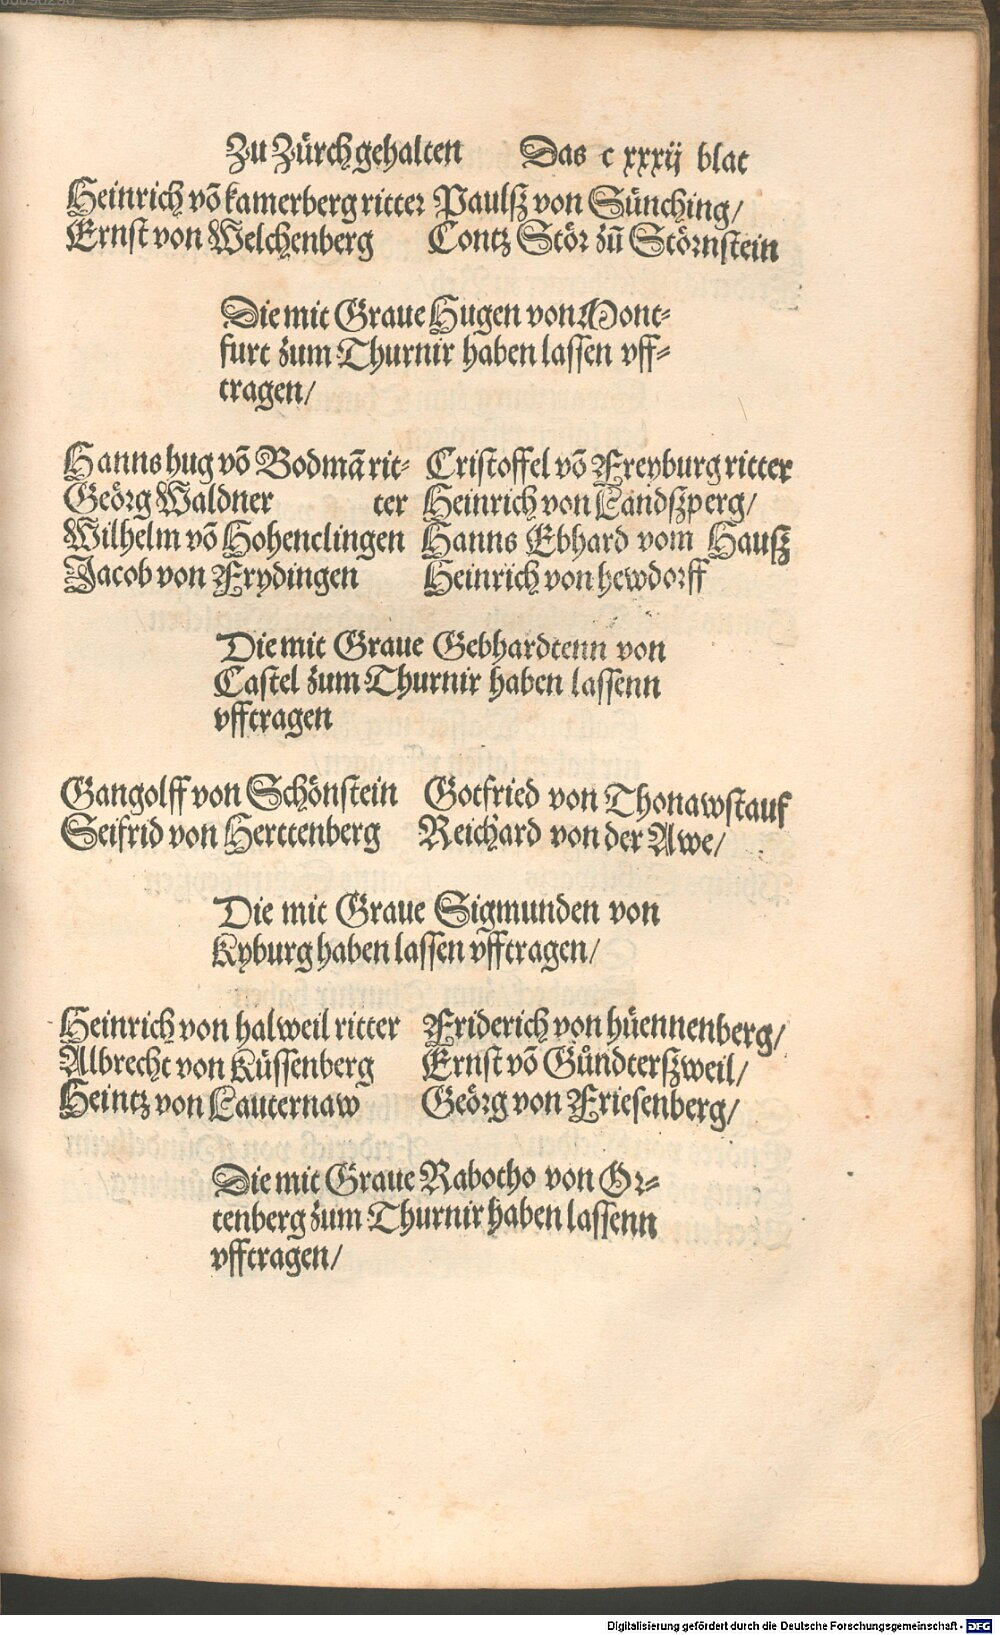 Zu Zürch gehalten Das c xxxij blat
Heinrich võ kamerberg ritter Paulsz von Sünching/
Ernst von Welchenberg Contz Stör zů Störnstein
Die mit Graue Hugen von Mont-
furt zum Thurnir haben lassen vff-
tragen/
Hanns hug võ Bodmã rit- Cristoffel võ Freyburg ritter
Geörg Waldner ter Heinrich von Landszperg/
Wilhelm võ Hohenclingen Hanns Ebhard vom Hausz
Jacob von Frydingen Heinrich von hewdorff
Die mit Graue Gebhardtenn von
Castel zum Thurnir haben lassenn
vfftragen
Gangolff von Schönstein Gotfried von Thonawstauf
Seifrid von Herttenberg Reichard von der Awe/
Die mit Graue Sigmunden von
Kyburg haben lassen vfftragen/
Heinrich von halweil ritter Friderich von hüennenberg/
Albrecht von Küssenberg Ernst võ Gůndterszweil/
Heintz von Lauternaw Geörg von Friesenberg/
Die mit Graue Rabotho von Or-
tenberg zum Thurnir haben lassenn
vfftragen/
Digitalisierung gefördert durch die Deutsche Forschungsgemeinschaft - DFG